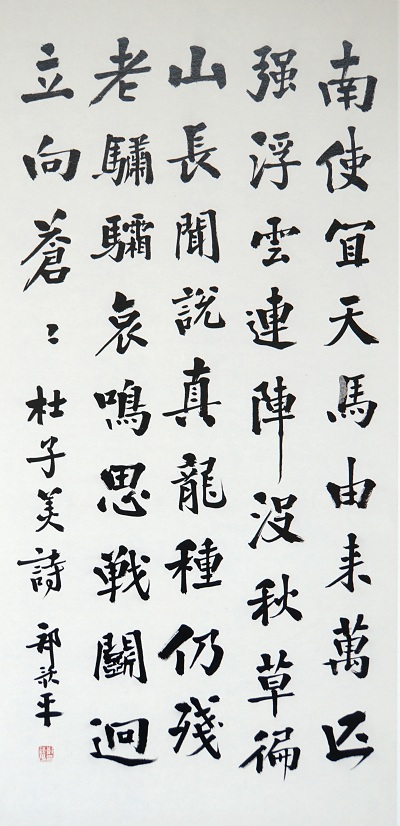 南使冝天馬由来萬匹
强浮雲連陣没秋草徧
山長聞說真龍種仍殘
老驌驦哀鳴思戰鬭迥
立向蒼〻杜子美詩